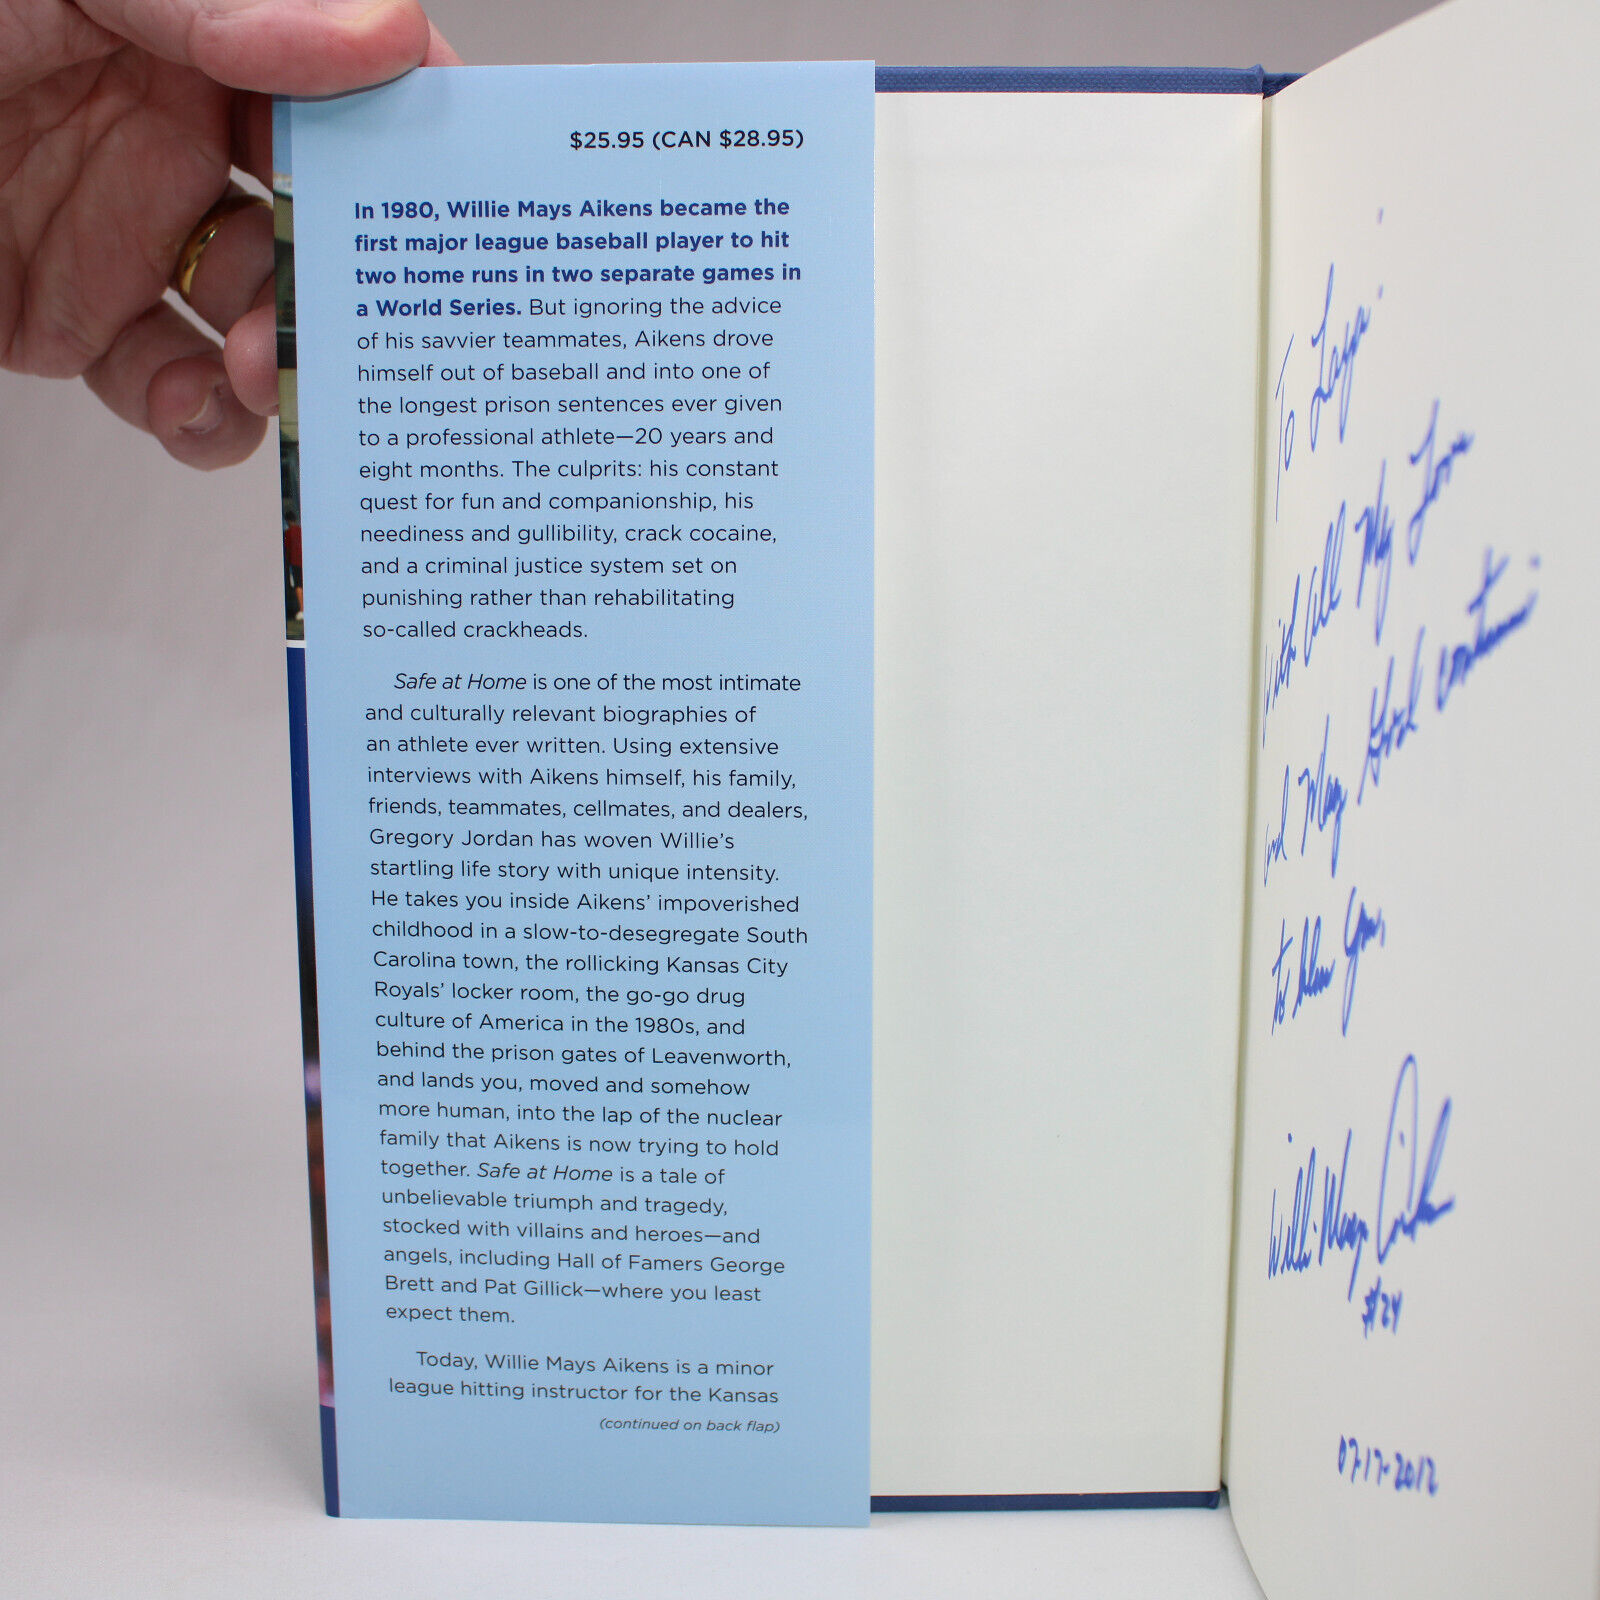 $25.95 (CAN $28.95)
In 1980, Willie Mays Aikens became the
first major league baseball player to hit
two home runs in two separate games in
a World Series. But ignoring the advice
of his savvier teammates, Aikens drove
himself out of baseball and into one of
the longest prison sentences ever given
to a professional athlete—20 years and
eight months. The culprits: his constant
quest for fun and companionship, his
neediness and gullibility, crack cocaine,
and a criminal justice system set on
punishing rather than rehabilitating
so-called crackheads.
Safe at Home is one of the most intimate
and culturally relevant biographies of
an athlete ever written. Using extensive
interviews with Aikens himself, his family,
friends, teammates, cellmates, and dealers,
Gregory Jordan has woven Willie's
startling life story with unique intensity.
He takes you inside Aikens' impoverished
childhood in a slow-to-desegregate South
Carolina town, the rollicking Kansas City
Royals' locker room, the go-go drug
culture of America in the 1980s, and
behind the prison gates of Leavenworth,
and lands you, moved and somehow
more human, into the lap of the nuclear
family that Aikens is now trying to hold
together. Safe at Home is a tale of
unbelievable triumph and tragedy,
stocked with villains and heroes—and
angels, including Hall of Famers George
Brett and Pat Gillick—where you least
expect them.
Today, Willie Mays Aikens is a minor
league hitting instructor for the Kansas
(continued on back flap)
To
With All My Love
and May God continue
to bless you,
Willie Mays Aikens
#24
07-17-2012